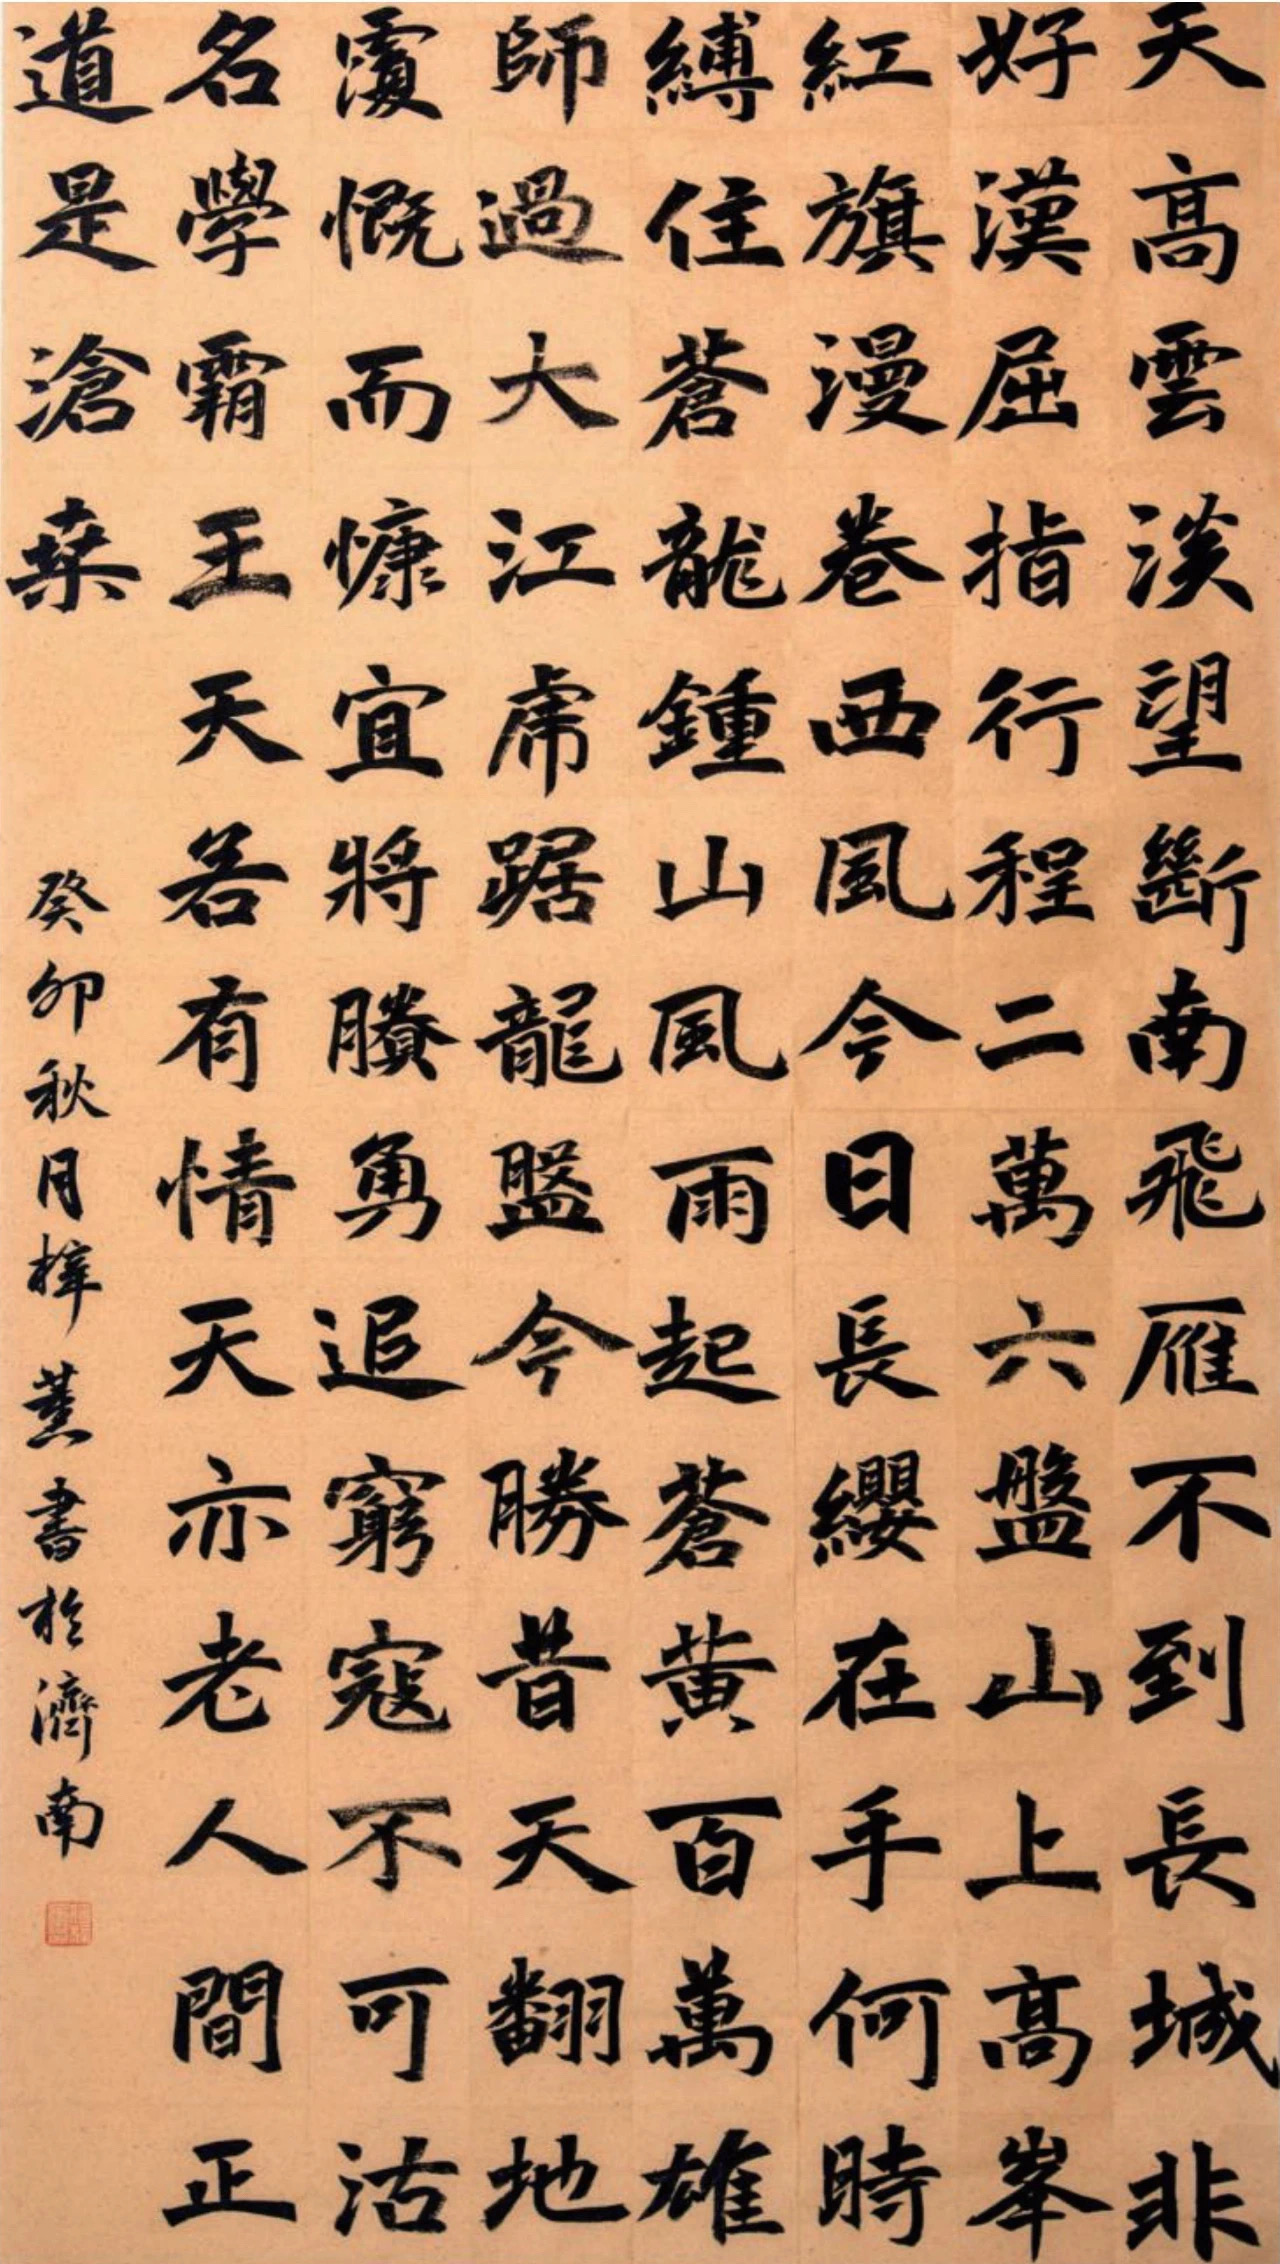 天高雲淡望斷南飛雁不到長城非
好漢屈指行程二萬六盤山上高峯
紅旗漫卷西風今日長纓在手何時
縛住蒼龍鍾山風雨起蒼黃百萬雄
師過大江虎踞龍盤今勝昔天翻地
覆慨而慷宜將賸勇追窮寇不可沽
名學霸王天若有情天亦老人間正
道是滄桑
癸卯秋月梓薰書於濟南